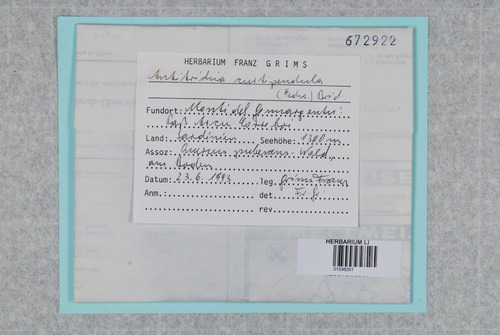 672922
HERBARIUM FRANZ GRIMS
Antitrichia curtipendula
(Hedw.) Brid.
Fundort: Monti del Gennargentu:
Paß Arcu
Land: Sardinien Seehöhe: 1300 m
Assoz: Quercus pubescens-Wald,
am Boden
Datum: 23.6.1993 leg. Grims Franz
Anm.: det Fr. Gr
rev
HERBARIUM LI
01598261